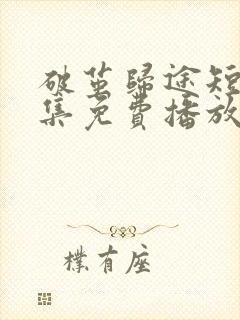 破茧歸途短
集免費播放
樸有座